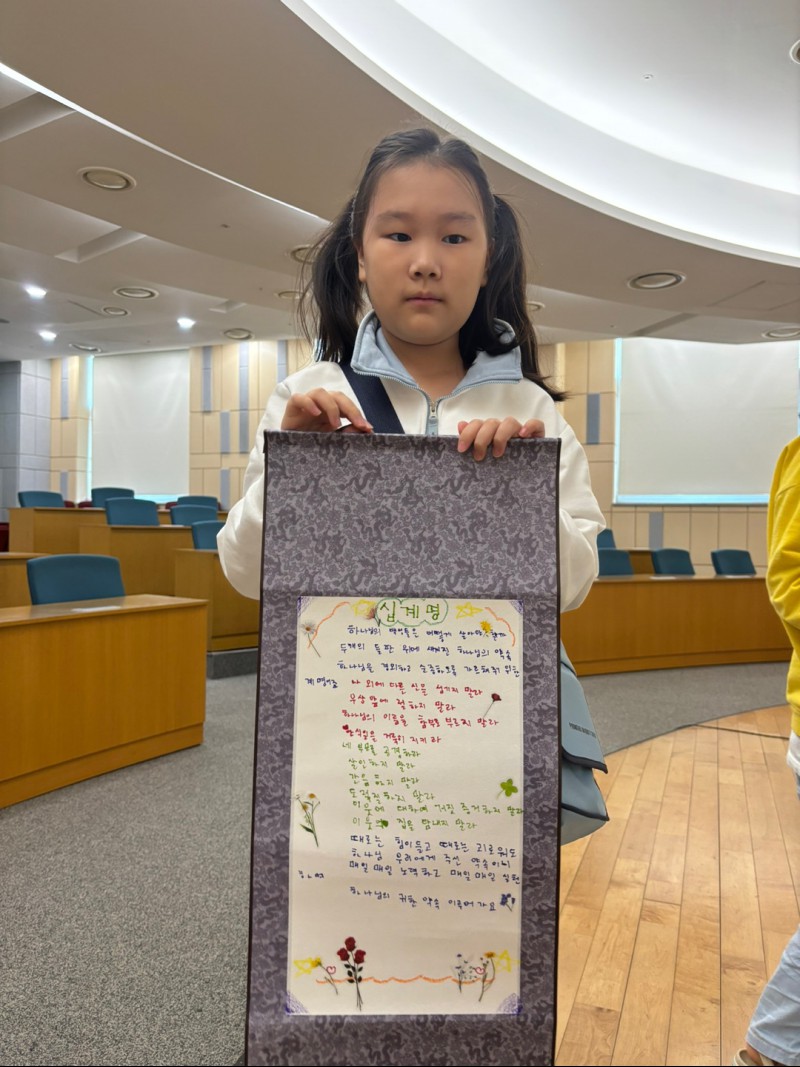 십계명
하나님의 백성들은 어떻게 살아야 할까
두개의 돌판 위에 새겨진 하나님의 약속
하나님을 경외하고 순종하도록 가르쳐주기 위한
계명이죠 나 외에 다른 신을 섬기지 말라
우상 앞에 절하지 말라
하나님의 이름을 함부로 부르지 말라
안식일을 거룩히 지키라
네 부모를 공경하라
살인하지 말라
간음하지 말라
도적질하지 말라
이웃에 대하여 거짓 증거하지 말라
이웃의 집을 탐내지 말라
때로는 힘이들고 때로는 괴로워도
하나님 우리에게 주신 약속이니
매일 매일 노력하고 매일 매일 실천
하며
하나님의 귀한 약속 이루어 가요